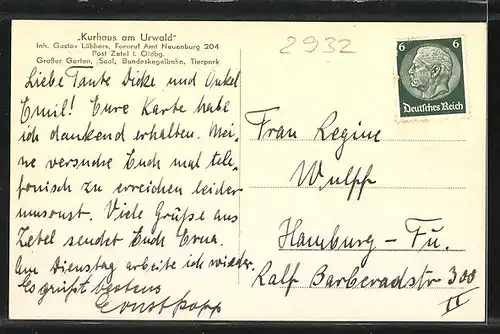 „Kurhaus am Urwald"
Inh. Gustav Lübbers, Fernruf Amt Neuenburg 204
Post Zetel i. Oldbg.
Großer Garten, Saal, Bundeskegelbahn, Tierpark
2932
6 6
Deutsches Reich
Liebe Tante Dicke und Onkel
Emil! Eure Karte habe
ich dankend erhalten. Mei-
ne versuche Euch mal tele-
fonisch zu erreichen leider
umsonst. Viele Grüße aus
Zetel sendet Euch Erna.
Am Dienstag arbeite ich wieder.
Es grüßt bestens
Ernst
Frau Regine
Wulff
Hamburg - Fu.
Ralf Barberadstr 300
II